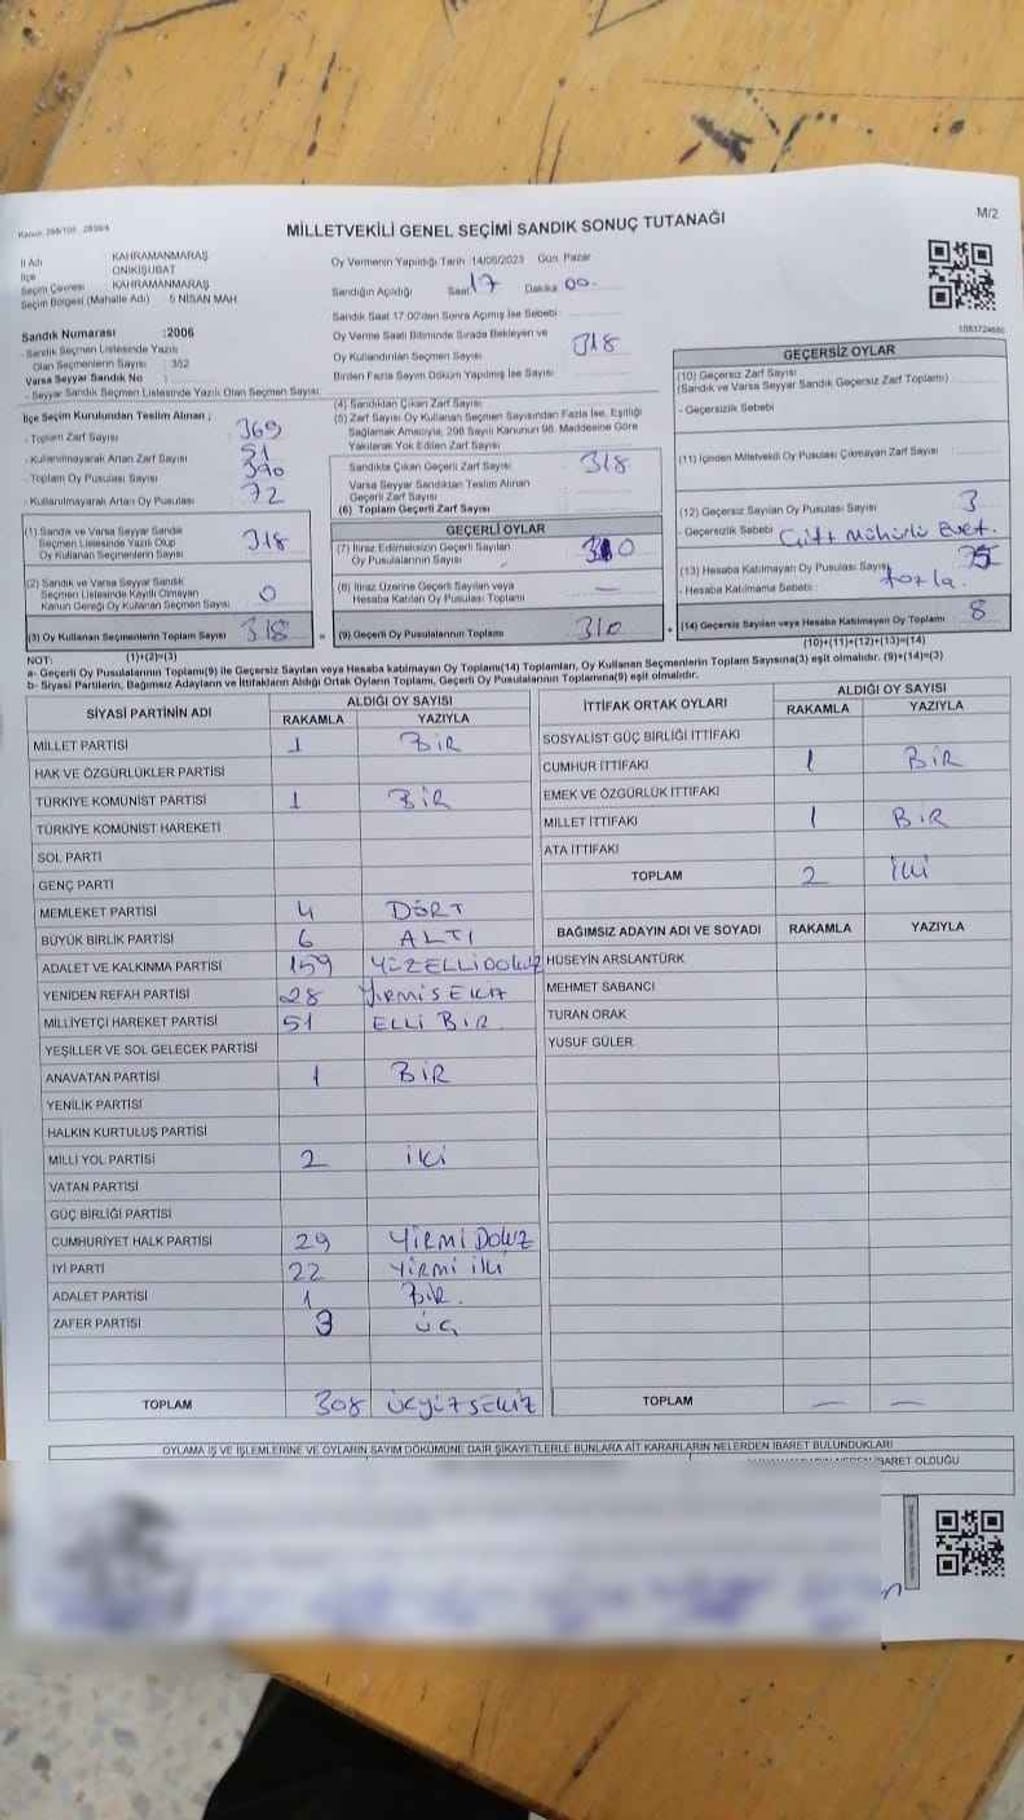 MİLLETVEKİLİ GENEL SEÇİMİ SANDIK SONUÇ TUTANAĞI
M/2
İl Adı KAHRAMANMARAŞ
İlçe ONİKİŞUBAT
Seçim Çevresi KAHRAMANMARAŞ
Seçim Bölgesi (Mahalle Adı) 5 NİSAN MAH
Sandık Numarası :2006
- Sandık Seçmen Listesinde Yazılı
Olan Seçmenlerin Sayısı : 382
Varsa Seyyar Sandık No :
- Seyyar Sandık Seçmen Listesinde Yazılı Olan Seçmen Sayısı:
İlçe Seçim Kurulundan Teslim Alınan ;
- Toplam Zarf Sayısı 369
- Kullanılmayarak Artan Zarf Sayısı 51
- Toplam Oy Pusulası Sayısı 390
- Kullanılmayarak Artan Oy Pusulası 72
(1) Sandık ve Varsa Seyyar Sandık
Seçmen Listesinde Yazılı Olup
Oy Kullanan Seçmenlerin Sayısı 318
(2) Sandık ve Varsa Seyyar Sandık
Seçmen Listesinde Kayıtlı Olmayan
Kanun Gereği Oy Kullanan Seçmen Sayısı 0
(3) Oy Kullanan Seçmenlerin Toplam Sayısı 318
(1)+(2)=(3)
Oy Vermenin Yapıldığı Tarih 14/05/2023 Gün Pazar
Sandığın Açıldığı Saat 17 Dakika 00.
Sandık Saat 17.00'den Sonra Açılmış İse Sebebi
Oy Verme Saati Bitiminde Sırada Bekleyen ve
Oy Kullandırılan Seçmen Sayısı 318
Birden Fazla Sayım Döküm Yapılmış İse Sayısı
(4) Sandıktan Çıkan Zarf Sayısı
(5) Zarf Sayısı Oy Kullanan Seçmen Sayısından Fazla İse, Eşitliği
Sağlamak Amacıyla, 298 Sayılı Kanunun 98. Maddesine Göre
Yakılarak Yok Edilen Zarf Sayısı
Sandıkta Çıkan Geçerli Zarf Sayısı 318
Varsa Seyyar Sandıktan Teslim Alınan
Geçerli Zarf Sayısı
(6) Toplam Geçerli Zarf Sayısı
GEÇERLİ OYLAR
(7) İtiraz Edilmeksizin Geçerli Sayılan
Oy Pusulalarının Sayısı 310
(8) İtiraz Üzerine Geçerli Sayılan veya
Hesaba Katılan Oy Pusulası Toplamı —
= (9) Geçerli Oy Pusulalarının Toplamı 310
GEÇERSİZ OYLAR
(10) Geçersiz Zarf Sayısı
(Sandık ve Varsa Seyyar Sandık Geçersiz Zarf Toplamı)
- Geçersizlik Sebebi
(11) İçinden Milletvekili Oy Pusulası Çıkmayan Zarf Sayısı
(12) Geçersiz Sayılan Oy Pusulası Sayısı 3
- Geçersizlik Sebebi Çift Mühürlü Evet.
(13) Hesaba Katılmayan Oy Pusulası Sayısı 5
- Hesaba Katılmama Sebebi fazla.
+ (14) Geçersiz Sayılan veya Hesaba Katılmayan Oy Toplamı 8
(10)+(11)+(12)+(13)=(14)
NOT:
a- Geçerli Oy Pusulalarının Toplamı(9) ile Geçersiz Sayılan veya Hesaba katılmayan Oy Toplamı(14) Toplamları, Oy Kullanan Seçmenlerin Toplam Sayısına(3) eşit olmalıdır. (9)+(14)=(3)
b- Siyasi Partilerin, Bağımsız Adayların ve İttifakların Aldığı Ortak Oyların Toplamı, Geçerli Oy Pusulalarının Toplamına(9) eşit olmalıdır.
SİYASİ PARTİNİN ADI ALDIĞI OY SAYISI
RAKAMLA YAZIYLA
MİLLET PARTİSİ 1 BİR
HAK VE ÖZGÜRLÜKLER PARTİSİ
TÜRKİYE KOMÜNİST PARTİSİ 1 BİR
TÜRKİYE KOMÜNİST HAREKETİ
SOL PARTİ
GENÇ PARTİ
MEMLEKET PARTİSİ 4 DÖRT
BÜYÜK BİRLİK PARTİSİ 6 ALTI
ADALET VE KALKINMA PARTİSİ 159 YÜZELLİDOKUZ
YENİDEN REFAH PARTİSİ 28 YİRMİSEKİZ
MİLLİYETÇİ HAREKET PARTİSİ 51 ELLİ BİR
YEŞİLLER VE SOL GELECEK PARTİSİ
ANAVATAN PARTİSİ 1 BİR
YENİLİK PARTİSİ
HALKIN KURTULUŞ PARTİSİ
MİLLİ YOL PARTİSİ 2 İKİ
VATAN PARTİSİ
GÜÇ BİRLİĞİ PARTİSİ
CUMHURİYET HALK PARTİSİ 29 YİRMİ DOKUZ
İYİ PARTİ 22 YİRMİ İKİ
ADALET PARTİSİ 1 BİR.
ZAFER PARTİSİ 3 ÜÇ
TOPLAM 308 ÜÇYÜZSEKİZ
İTTİFAK ORTAK OYLARI ALDIĞI OY SAYISI
RAKAMLA YAZIYLA
SOSYALİST GÜÇ BİRLİĞİ İTTİFAKI
CUMHUR İTTİFAKI 1 BİR
EMEK VE ÖZGÜRLÜK İTTİFAKI
MİLLET İTTİFAKI 1 BİR
ATA İTTİFAKI
TOPLAM 2 İKİ
BAĞIMSIZ ADAYIN ADI VE SOYADI RAKAMLA YAZIYLA
HÜSEYİN ARSLANTÜRK
MEHMET SABANCI
TURAN ORAK
YUSUF GÜLER
TOPLAM — —
OYLAMA İŞ VE İŞLEMLERİNE VE OYLARIN SAYIM DÖKÜMÜNE DAİR ŞİKAYETLERLE BUNLARA AİT KARARLARIN NELERDEN İBARET BULUNDUKLARI
İBARET OLDUĞU